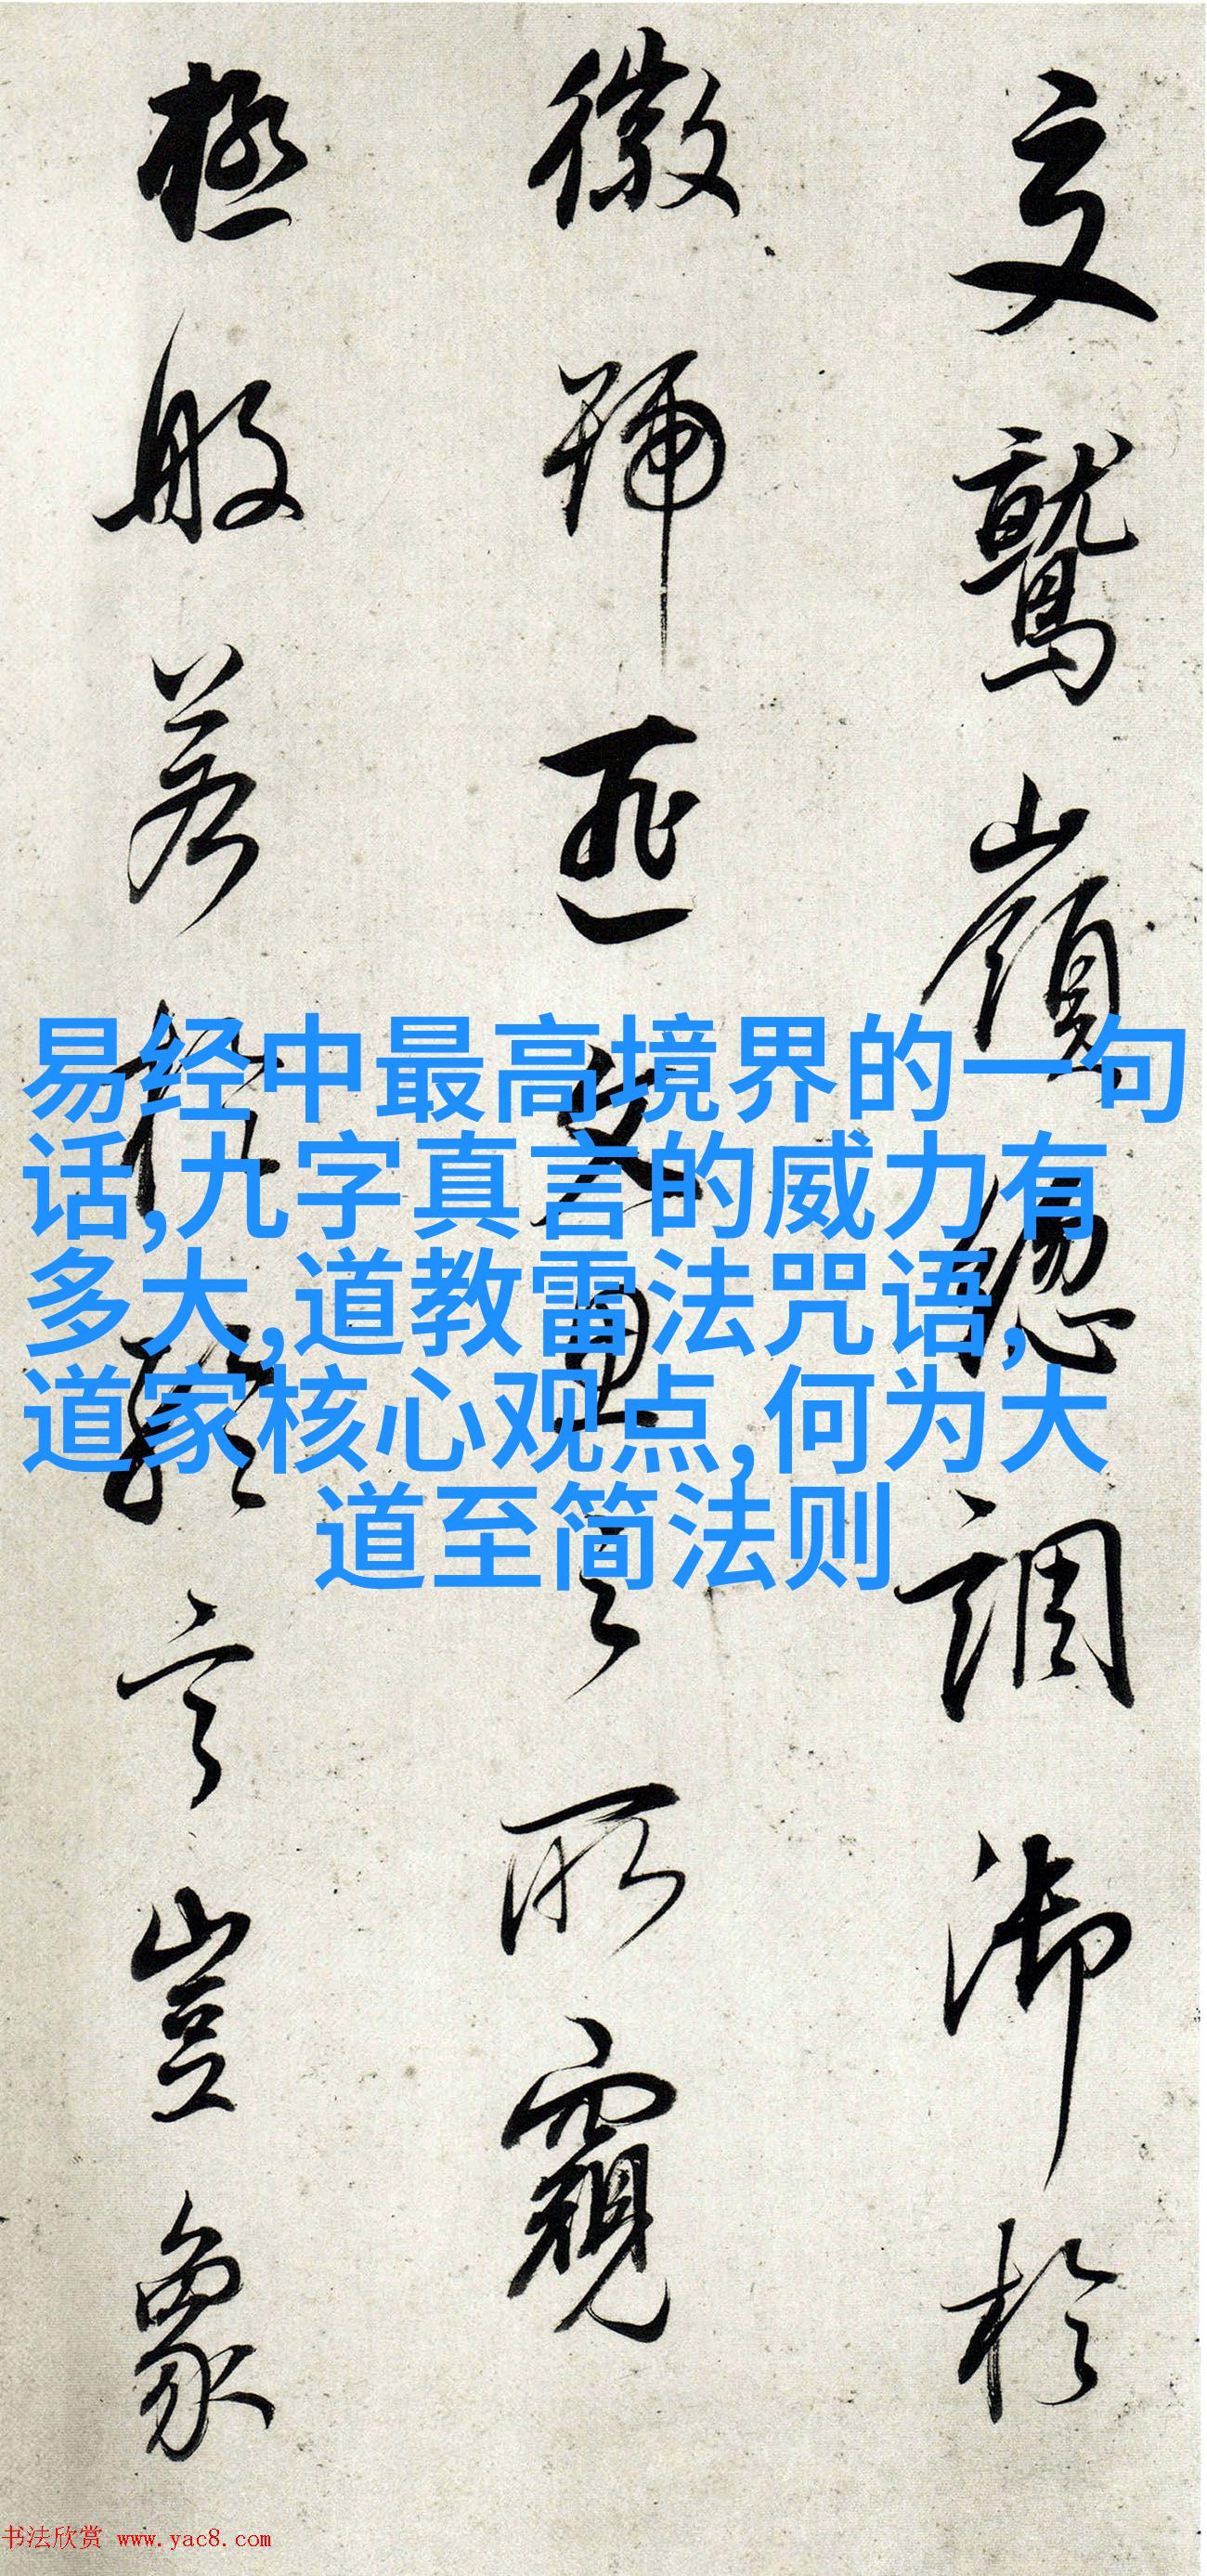 鷲嶺總調御於
徽號匪之所窺
極般若言豈象
易经中最高境界的一句
话,九字真言的威力有
多大,道教雷法咒语,
道家核心观点,何为大
道至简法则
书法欣赏 www.yac8.com